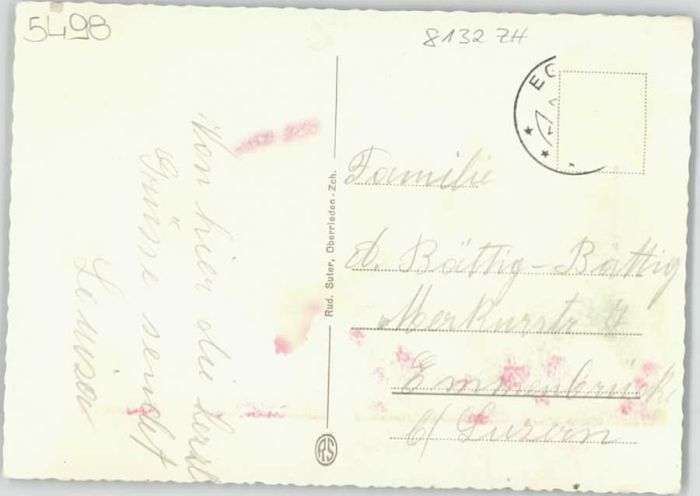 5498
8132 ZH
EG
Von hier die herzl
Grüsse sendet
Louisa
Rud. Suter, Oberrieden - Zch.
RS
Familie
A. Bättig-Bättig
Merkurstr.
Emmenbrücke
b/ Luzern